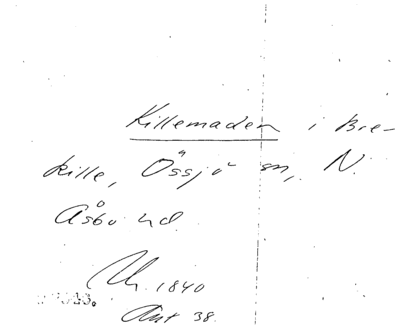 Killemaden i Bre-
kille, Össjö sn, N.
Åsbo hd.
1840
Ant 38.